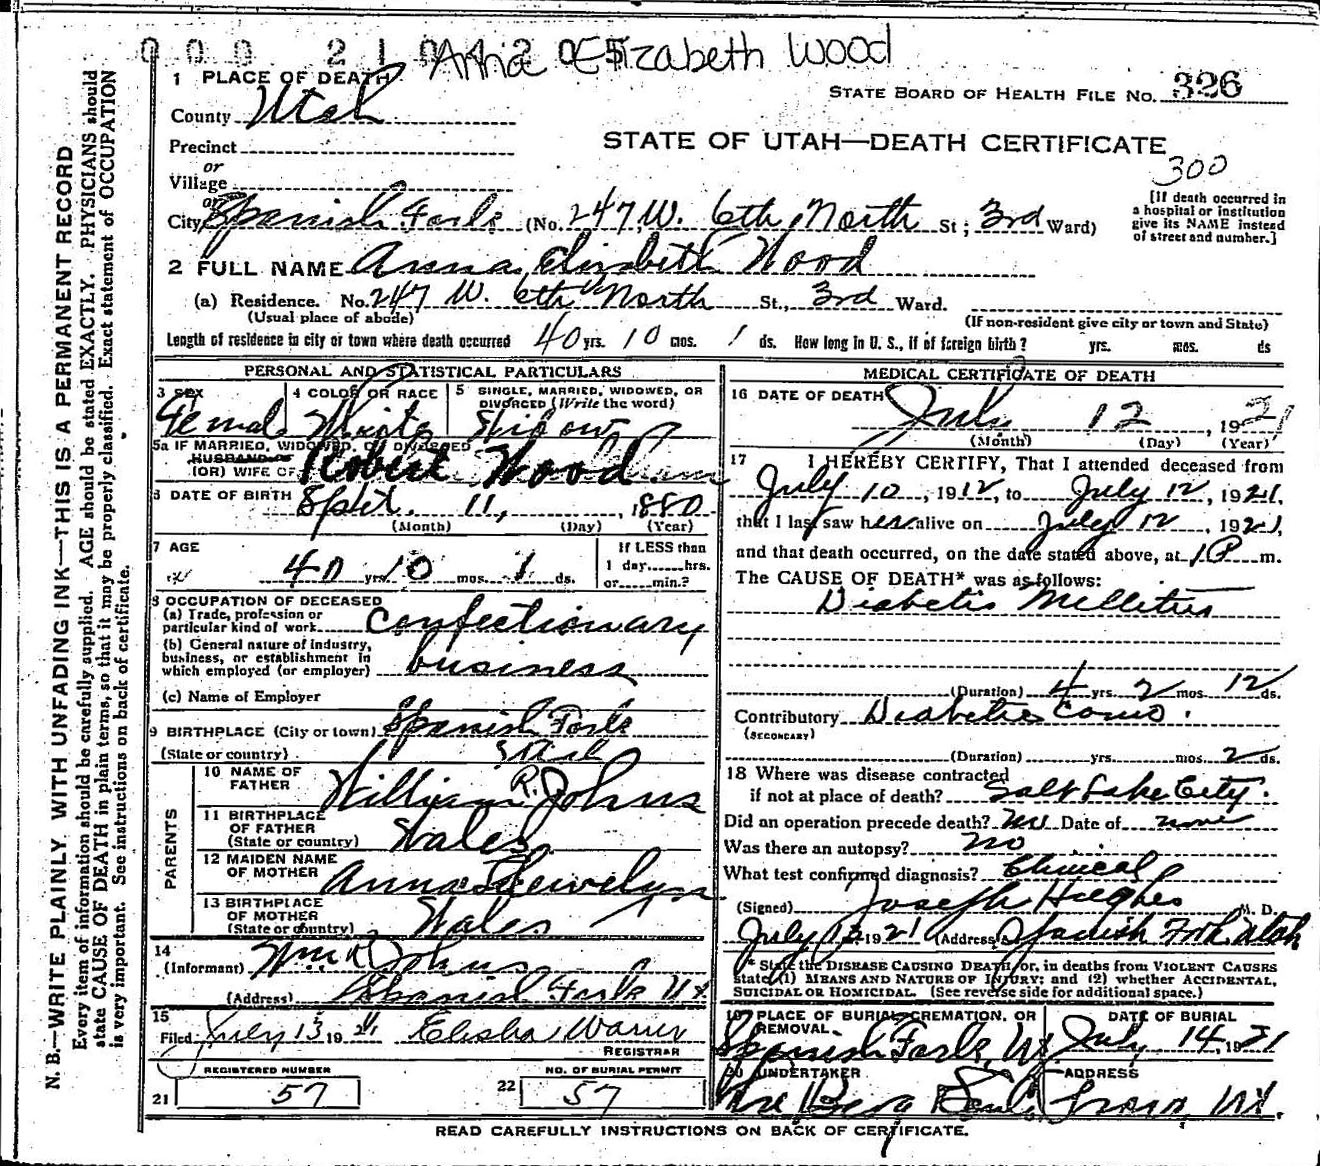 Anna Elizabeth Wood
1 PLACE OF DEATH
STATE BOARD OF HEALTH FILE NO. 326
County Utah
STATE OF UTAH—DEATH CERTIFICATE
Precinct
300
or
Village
or
City Spanish Fork (No. 247 W. 6th North St; 3rd Ward)
[If death occurred in a hospital or institution give its NAME instead of street and number.]
2 FULL NAME Anna Elizabeth Wood
(a) Residence. No. 247 W. 6th North St., 3rd Ward.
(Usual place of abode)
(If non-resident give city or town and State)
Length of residence in city or town where death occurred 40 yrs. 10 mos. 1 ds. How long in U. S., if of foreign birth? yrs. mos. ds
PERSONAL AND STATISTICAL PARTICULARS
3 SEX
Female
4 COLOR OR RACE
White
5 SINGLE, MARRIED, WIDOWED, OR DIVORCED (Write the word)
Widow
5a IF MARRIED, WIDOWED, OR DIVORCED
HUSBAND OF
(OR) WIFE OF Robert Wood
6 DATE OF BIRTH Sept. 11, 1880
(Month) (Day) (Year)
7 AGE
40 yrs. 10 mos. 1 ds.
If LESS than
1 day......hrs.
or......min.?
8 OCCUPATION OF DECEASED
(a) Trade, profession or
particular kind of work Confectionary
(b) General nature of industry,
business, or establishment in
which employed (or employer) business
(c) Name of Employer
9 BIRTHPLACE (City or town) Spanish Fork
(State or country) Utah
PARENTS
10 NAME OF FATHER William R. Johns
11 BIRTHPLACE OF FATHER
(State or country) Wales
12 MAIDEN NAME OF MOTHER Anna Llewelyn
13 BIRTHPLACE OF MOTHER
(State or country) Wales
14
(Informant) Wm R Johns
(Address) Spanish Fork Ut
15
Filed July 13 1921 Elisha Warner
REGISTRAR
REGISTERED NUMBER
21 57
NO. OF BURIAL PERMIT
22 57
MEDICAL CERTIFICATE OF DEATH
16 DATE OF DEATH July 12 1921
(Month) (Day) (Year)
17 I HEREBY CERTIFY, That I attended deceased from
July 10, 1912, to July 12, 1921,
that I last saw her alive on July 12, 1921,
and that death occurred, on the date stated above, at 1 P m.
The CAUSE OF DEATH* was as follows:
Diabetis Mellitus
(Duration) 4 yrs 2 mos 12 ds.
Contributory Diabetic Coma.
(SECONDARY)
(Duration) yrs. mos. 2 ds.
18 Where was disease contracted
if not at place of death? Salt Lake City.
Did an operation precede death? no Date of none
Was there an autopsy? no
What test confirmed diagnosis? Clinical
(Signed) Joseph Hughes M. D.
July 13 1921 (Address) Spanish Fork Utah
* State the DISEASE CAUSING DEATH, or, in deaths from VIOLENT CAUSES
state (1) MEANS AND NATURE OF INJURY; and (2) whether ACCIDENTAL,
SUICIDAL OR HOMICIDAL. (See reverse side for additional space.)
19 PLACE OF BURIAL, CREMATION, OR REMOVAL
Spanish Fork, Ut
DATE OF BURIAL
July 14, 1921
20 UNDERTAKER
ADDRESS
Provo, Ut.
READ CAREFULLY INSTRUCTIONS ON BACK OF CERTIFICATE.
N. B.—WRITE PLAINLY, WITH UNFADING INK—THIS IS A PERMANENT RECORD
Every item of information should be carefully supplied. AGE should be stated EXACTLY. PHYSICIANS should
state CAUSE OF DEATH in plain terms, so that it may be properly classified. Exact statement of OCCUPATION
is very important. See instructions on back of certificate.